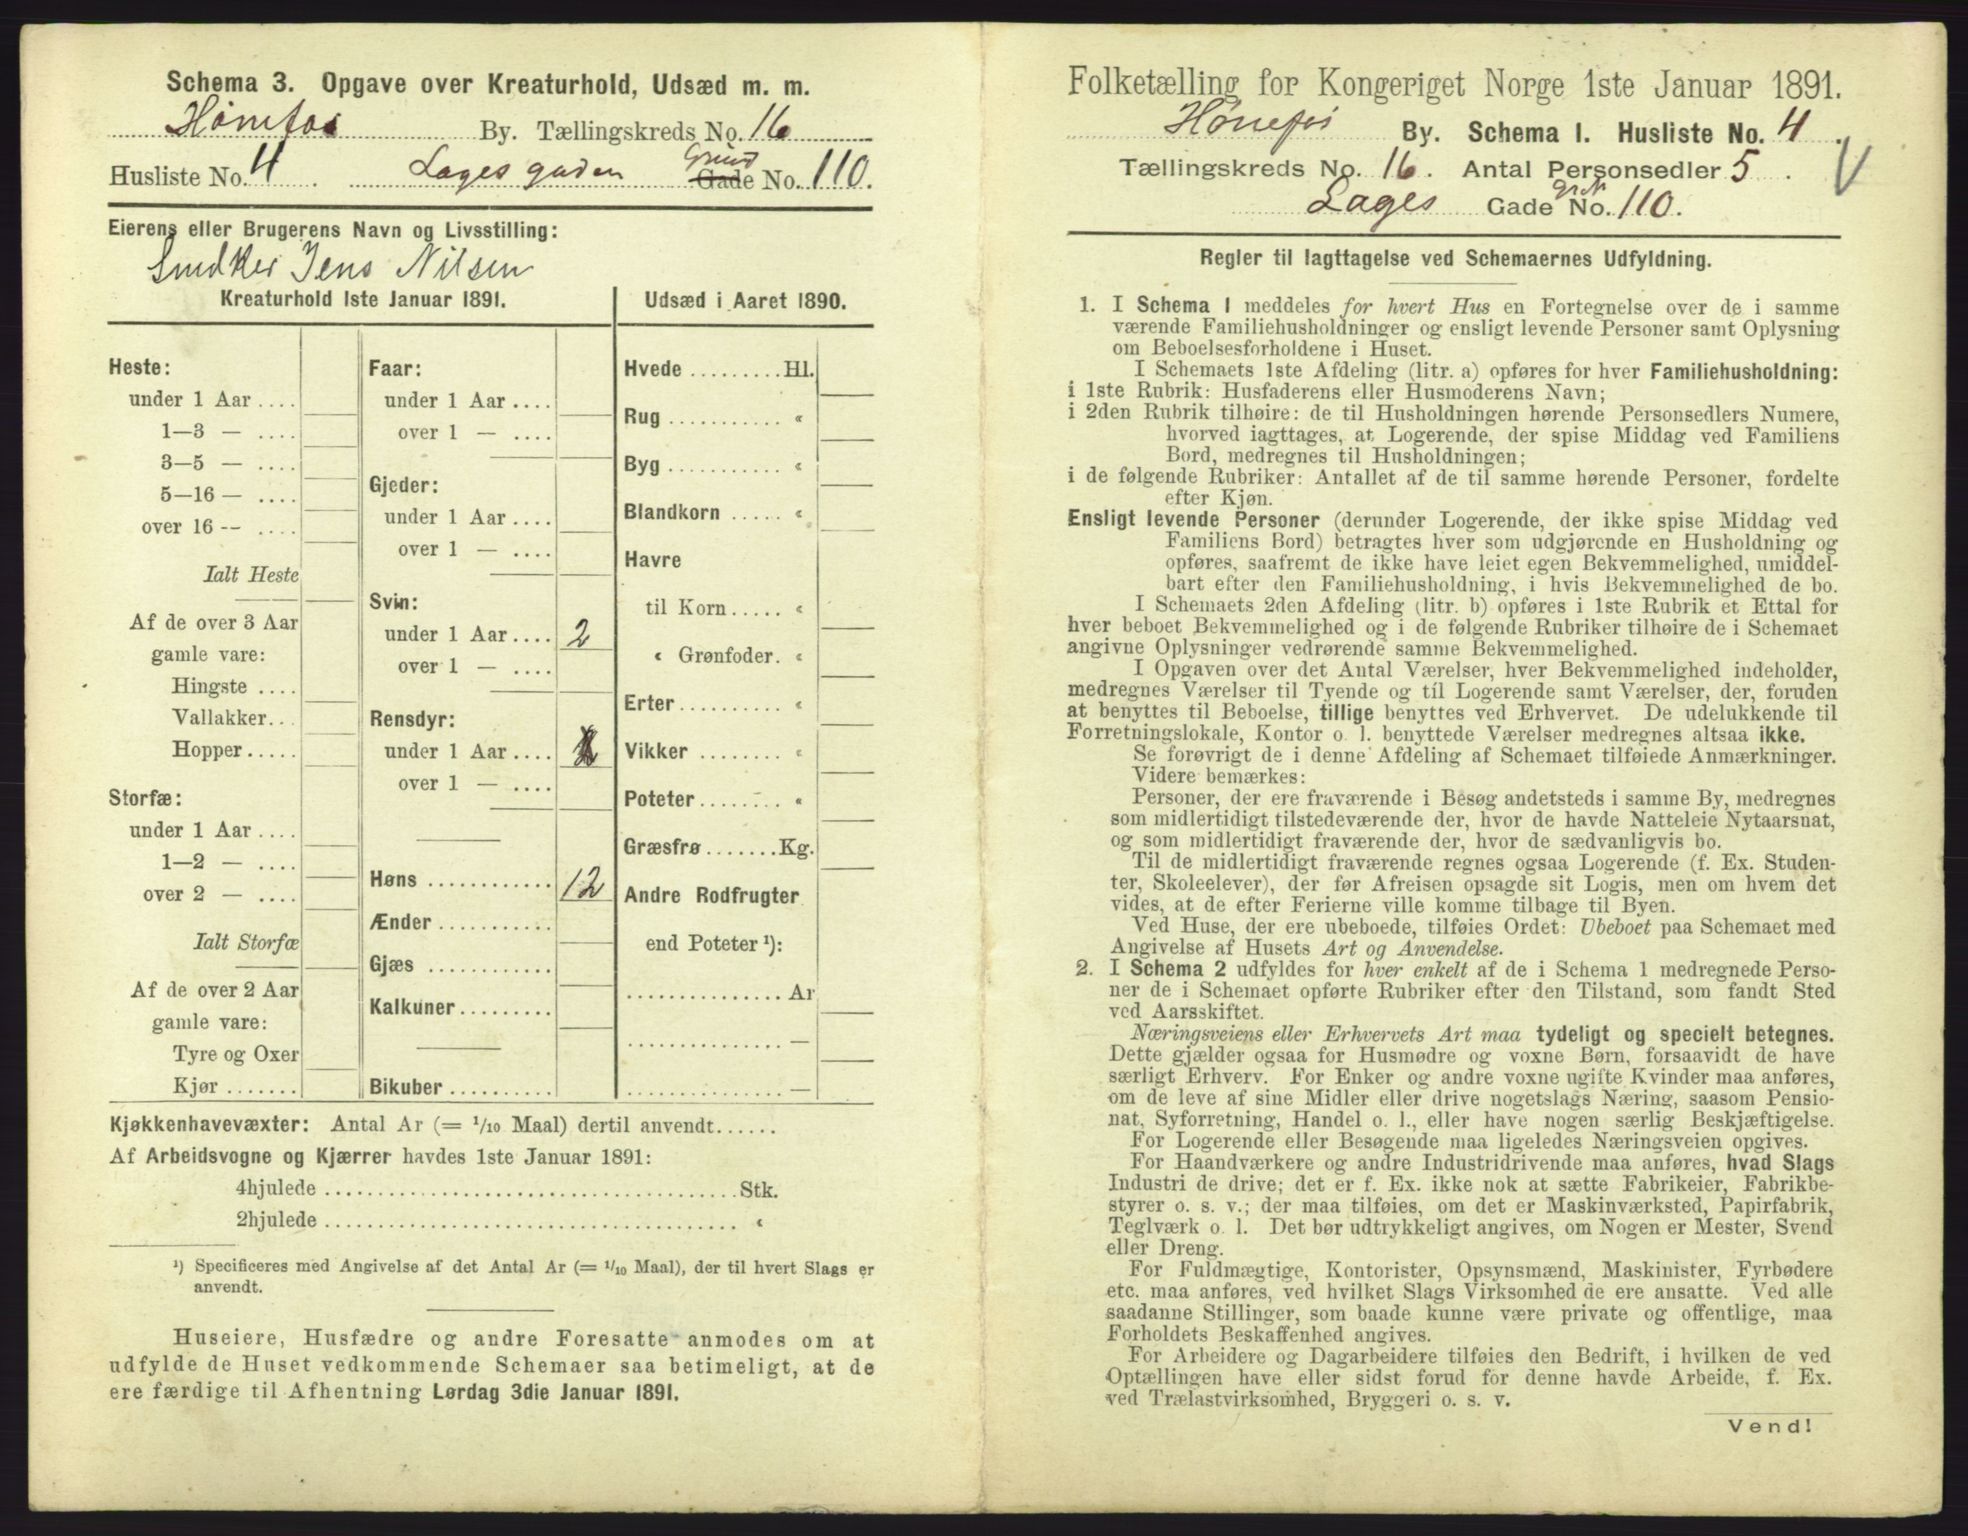 Schema 3. Opgave over Kreaturhold, Udsæd m. m.
Hønefos By. Tællingskreds No. 16
Husliste No. 4 . Lagesgaden Grund Gade No. 110.
Eierens eller Brugerens Navn og Livsstilling:
Snedker Jens Nilsen
Kreaturhold 1ste Januar 1891.
Heste:
under 1 Aar ....
1—3 — ....
3—5 — ....
5—16 — ....
over 16 -- ....
Ialt Heste
Af de over 3 Aar
gamle vare:
Hingste ....
Vallakker...
Hopper.....
Storfæ:
under 1 Aar ....
1—2 — ....
over 2 — ....
Ialt Storfæ
Af de over 2 Aar
gamle vare:
Tyre og Oxer
Kjør .......
Faar:
under 1 Aar ....
over 1 — ....
Gjeder:
under 1 Aar ....
over 1 — ....
Svin:
under 1 Aar .... 2
over 1 — ....
Rensdyr:
under 1 Aar ....
over 1 — ....
Høns ............ 12
Ænder ...........
Gjæs ............
Kalkuner.........
Bikuber ..........
Udsæd i Aaret 1890.
Hvede .........Hl.
Rug ........... «
Byg ........... «
Blandkorn ..... «
Havre
til Korn..... «
« Grønfoder. «
Erter.......... «
Vikker ........ «
Poteter........ «
Græsfrø.......Kg.
Andre Rodfrugter
end Poteter ¹):
............... Ar
............... —
............... —
Kjøkkenhavevæxter: Antal Ar (= 1/10 Maal) dertil anvendt......
Af Arbeidsvogne og Kjærrer havdes 1ste Januar 1891:
4hjulede ........................................Stk.
2hjulede ........................................ «
¹) Specificeres med Angivelse af det Antal Ar (= 1/10 Maal), der til hvert Slags er
anvendt.
Huseiere, Husfædre og andre Foresatte anmodes om at
udfylde de Huset vedkommende Schemaer saa betimeligt, at de
ere færdige til Afhentning Lørdag 3die Januar 1891.
Folketælling for Kongeriget Norge 1ste Januar 1891.
Hønefos By. Schema I. Husliste No. 4 .
Tællingskreds No. 16. Antal Personsedler 5 .
Lages Gade Gr.N No. 110.
Regler til Iagttagelse ved Schemaernes Udfyldning.
1. I Schema I meddeles for hvert Hus en Fortegnelse over de i samme
værende Familiehusholdninger og ensligt levende Personer samt Oplysning
om Beboelsesforholdene i Huset.
I Schemaets 1ste Afdeling (litr. a) opføres for hver Familiehusholdning:
i 1ste Rubrik: Husfaderens eller Husmoderens Navn;
i 2den Rubrik tilhøire: de til Husholdningen hørende Personsedlers Numere,
hvorved iagttages, at Logerende, der spise Middag ved Familiens
Bord, medregnes til Husholdningen;
i de følgende Rubriker: Antallet af de til samme hørende Personer, fordelte
efter Kjøn.
Ensligt levende Personer (derunder Logerende, der ikke spise Middag ved
Familiens Bord) betragtes hver som udgjørende en Husholdning og
opføres, saafremt de ikke have leiet egen Bekvemmelighed, umiddel-
bart efter den Familiehusholdning, i hvis Bekvemmelighed de bo.
I Schemaets 2den Afdeling (litr. b) opføres i 1ste Rubrik et Ettal for
hver beboet Bekvemmelighed og i de følgende Rubriker tilhøire de i Schemaet
angivne Oplysninger vedrørende samme Bekvemmelighed.
I Opgaven over det Antal Værelser, hver Bekvemmelighed indeholder,
medregnes Værelser til Tyende og til Logerende samt Værelser, der, foruden
at benyttes til Beboelse, tillige benyttes ved Erhvervet. De udelukkende til
Forretningslokale, Kontor o. l. benyttede Værelser medregnes altsaa ikke.
Se forøvrigt de i denne Afdeling af Schemaet tilføiede Anmærkninger.
Videre bemærkes:
Personer, der ere fraværende i Besøg andetsteds i samme By, medregnes
som midlertidigt tilstedeværende der, hvor de havde Natteleie Nytaarsnat,
og som midlertidigt fraværende der, hvor de sædvanligvis bo.
Til de midlertidigt fraværende regnes ogsaa Logerende (f. Ex. Studen-
ter, Skoleelever), der før Afreisen opsagde sit Logis, men om hvem det
vides, at de efter Ferierne ville komme tilbage til Byen.
Ved Huse, der ere ubeboede, tilføies Ordet: Ubeboet paa Schemaet med
Angivelse af Husets Art og Anvendelse.
2. I Schema 2 udfyldes for hver enkelt af de i Schema 1 medregnede Perso-
ner de i Schemaet opførte Rubriker efter den Tilstand, som fandt Sted
ved Aarsskiftet.
Næringsveiens eller Erhvervets Art maa tydeligt og specielt betegnes.
Dette gjælder ogsaa for Husmødre og voxne Børn, forsaavidt de have
særligt Erhverv. For Enker og andre voxne ugifte Kvinder maa anføres,
om de leve af sine Midler eller drive nogetslags Næring, saasom Pensio-
nat, Syforretning, Handel o. l., eller have nogen særlig Beskjæftigelse.
For Logerende eller Besøgende maa ligeledes Næringsveien opgives.
For Haandværkere og andre Industridrivende maa anføres, hvad Slags
Industri de drive; det er f. Ex. ikke nok at sætte Fabrikeier, Fabrikbe-
styrer o. s. v.; der maa tilføies, om det er Maskinværksted, Papirfabrik,
Teglværk o. l. Det bør udtrykkeligt angives, om Nogen er Mester, Svend
eller Dreng.
For Fuldmægtige, Kontorister, Opsynsmænd, Maskinister, Fyrbødere
etc. maa anføres, ved hvilket Slags Virksomhed de ere ansatte. Ved alle
saadanne Stillinger, som baade kunne være private og offentlige, maa
Forholdets Beskaffenhed angives.
For Arbeidere og Dagarbeidere tilføies den Bedrift, i hvilken de ved
Optællingen have eller sidst forud for denne havde Arbeide, f. Ex.
ved Trælastvirksomhed, Bryggeri o. s. v.
Vend!